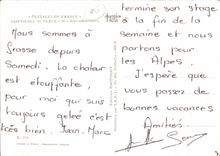 Nous sommes à
Grasse depuis
Samedi. La chaleur
est étouffante,
pour moi qui suis
toujours gelée c'est
très bien. Jean-Marc
termine son stage
à la fin de la
semaine et nous
partons pour
les Alpes.
J'espère que
vous passez de
bonnes vacances
Amitiés